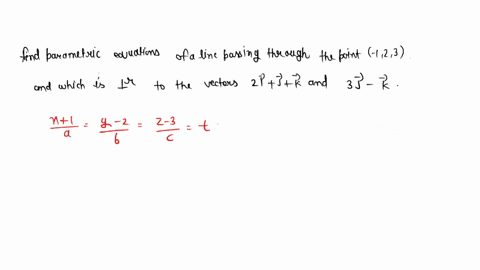 find parametric equations of a line passing through the point (-1,2,3)
and which is ⊥r to the vectors 2i⃗+j⃗+k⃗ and 3j⃗-k⃗.
x+1/a = y-2/b = z-3/c = t